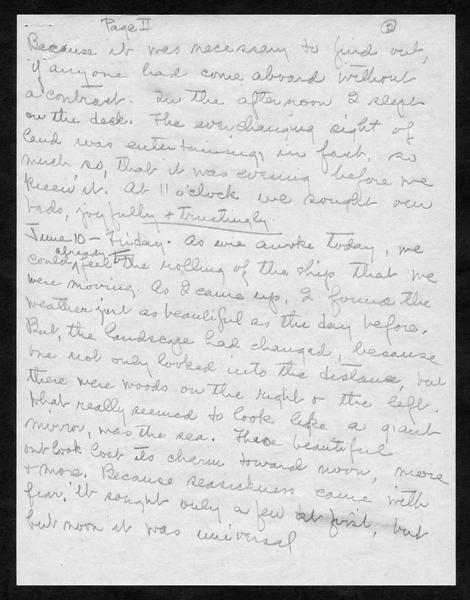 Page II
②
Because it was necessary to find out,
if anyone had come aboard without
a contrast. In the afternoon I slept
on the desk. The everchanging sight of
land was entertaining, in fact, so
much so, that it was evening before we
knew it. At 11 o'clock we sought our
beds, joyfully & trustingly
June 10 - Friday. As we awoke today, we
already
could feel by the rolling of the ship that we
were moving. As I came up, I found the
weather just as beautiful as the day before.
But, the landscape had changed, because
one not only looked into the distance, but
there were woods on the right & the left.
What really seemed to look like a giant
mirror, was the sea. These beautiful
outlook lost its charm toward noon, more
& more. Because seasickness came with
fear, it sought only a few at first, but
but noon it was universal